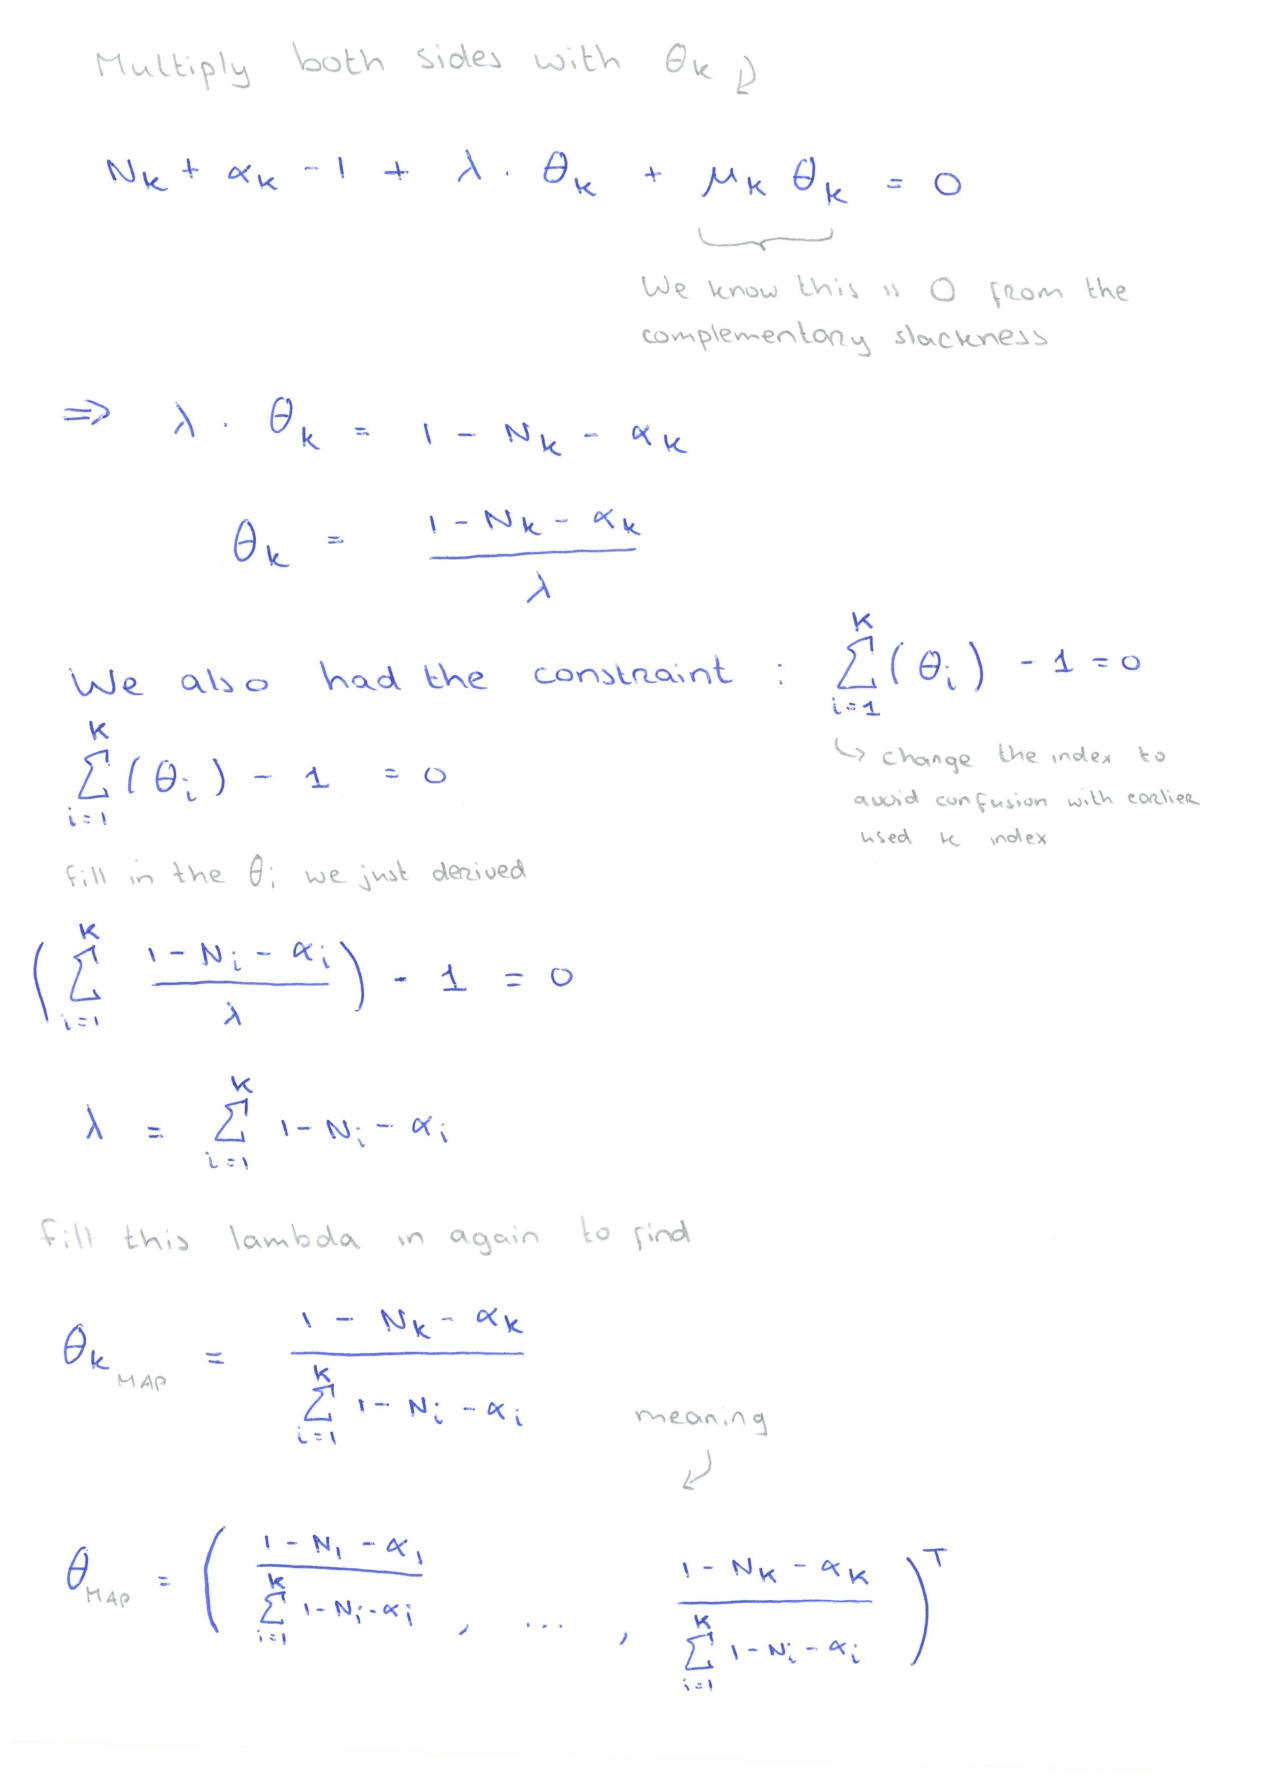 Multiply both sides with θk
Nk + αk - 1 + λ · θk + μk θk = 0
We know this is 0 from the
complementary slackness
⇒ λ · θk = 1 - Nk - αk
θk = (1 - Nk - αk) / λ
We also had the constraint : ∑_{i=1}^{K} (θi) - 1 = 0
↳ change the index to
avoid confusion with earlier
used k index
∑_{i=1}^{K} (θi) - 1 = 0
fill in the θi we just derived
(∑_{i=1}^{K} (1 - Ni - αi) / λ) - 1 = 0
λ = ∑_{i=1}^{K} 1 - Ni - αi
fill this lambda in again to find
θk MAP = (1 - Nk - αk) / (∑_{i=1}^{K} 1 - Ni - αi)
meaning
θMAP = ((1 - N1 - α1) / (∑_{i=1}^{K} 1 - Ni - αi) , ... , (1 - NK - αK) / (∑_{i=1}^{K} 1 - Ni - αi))^T